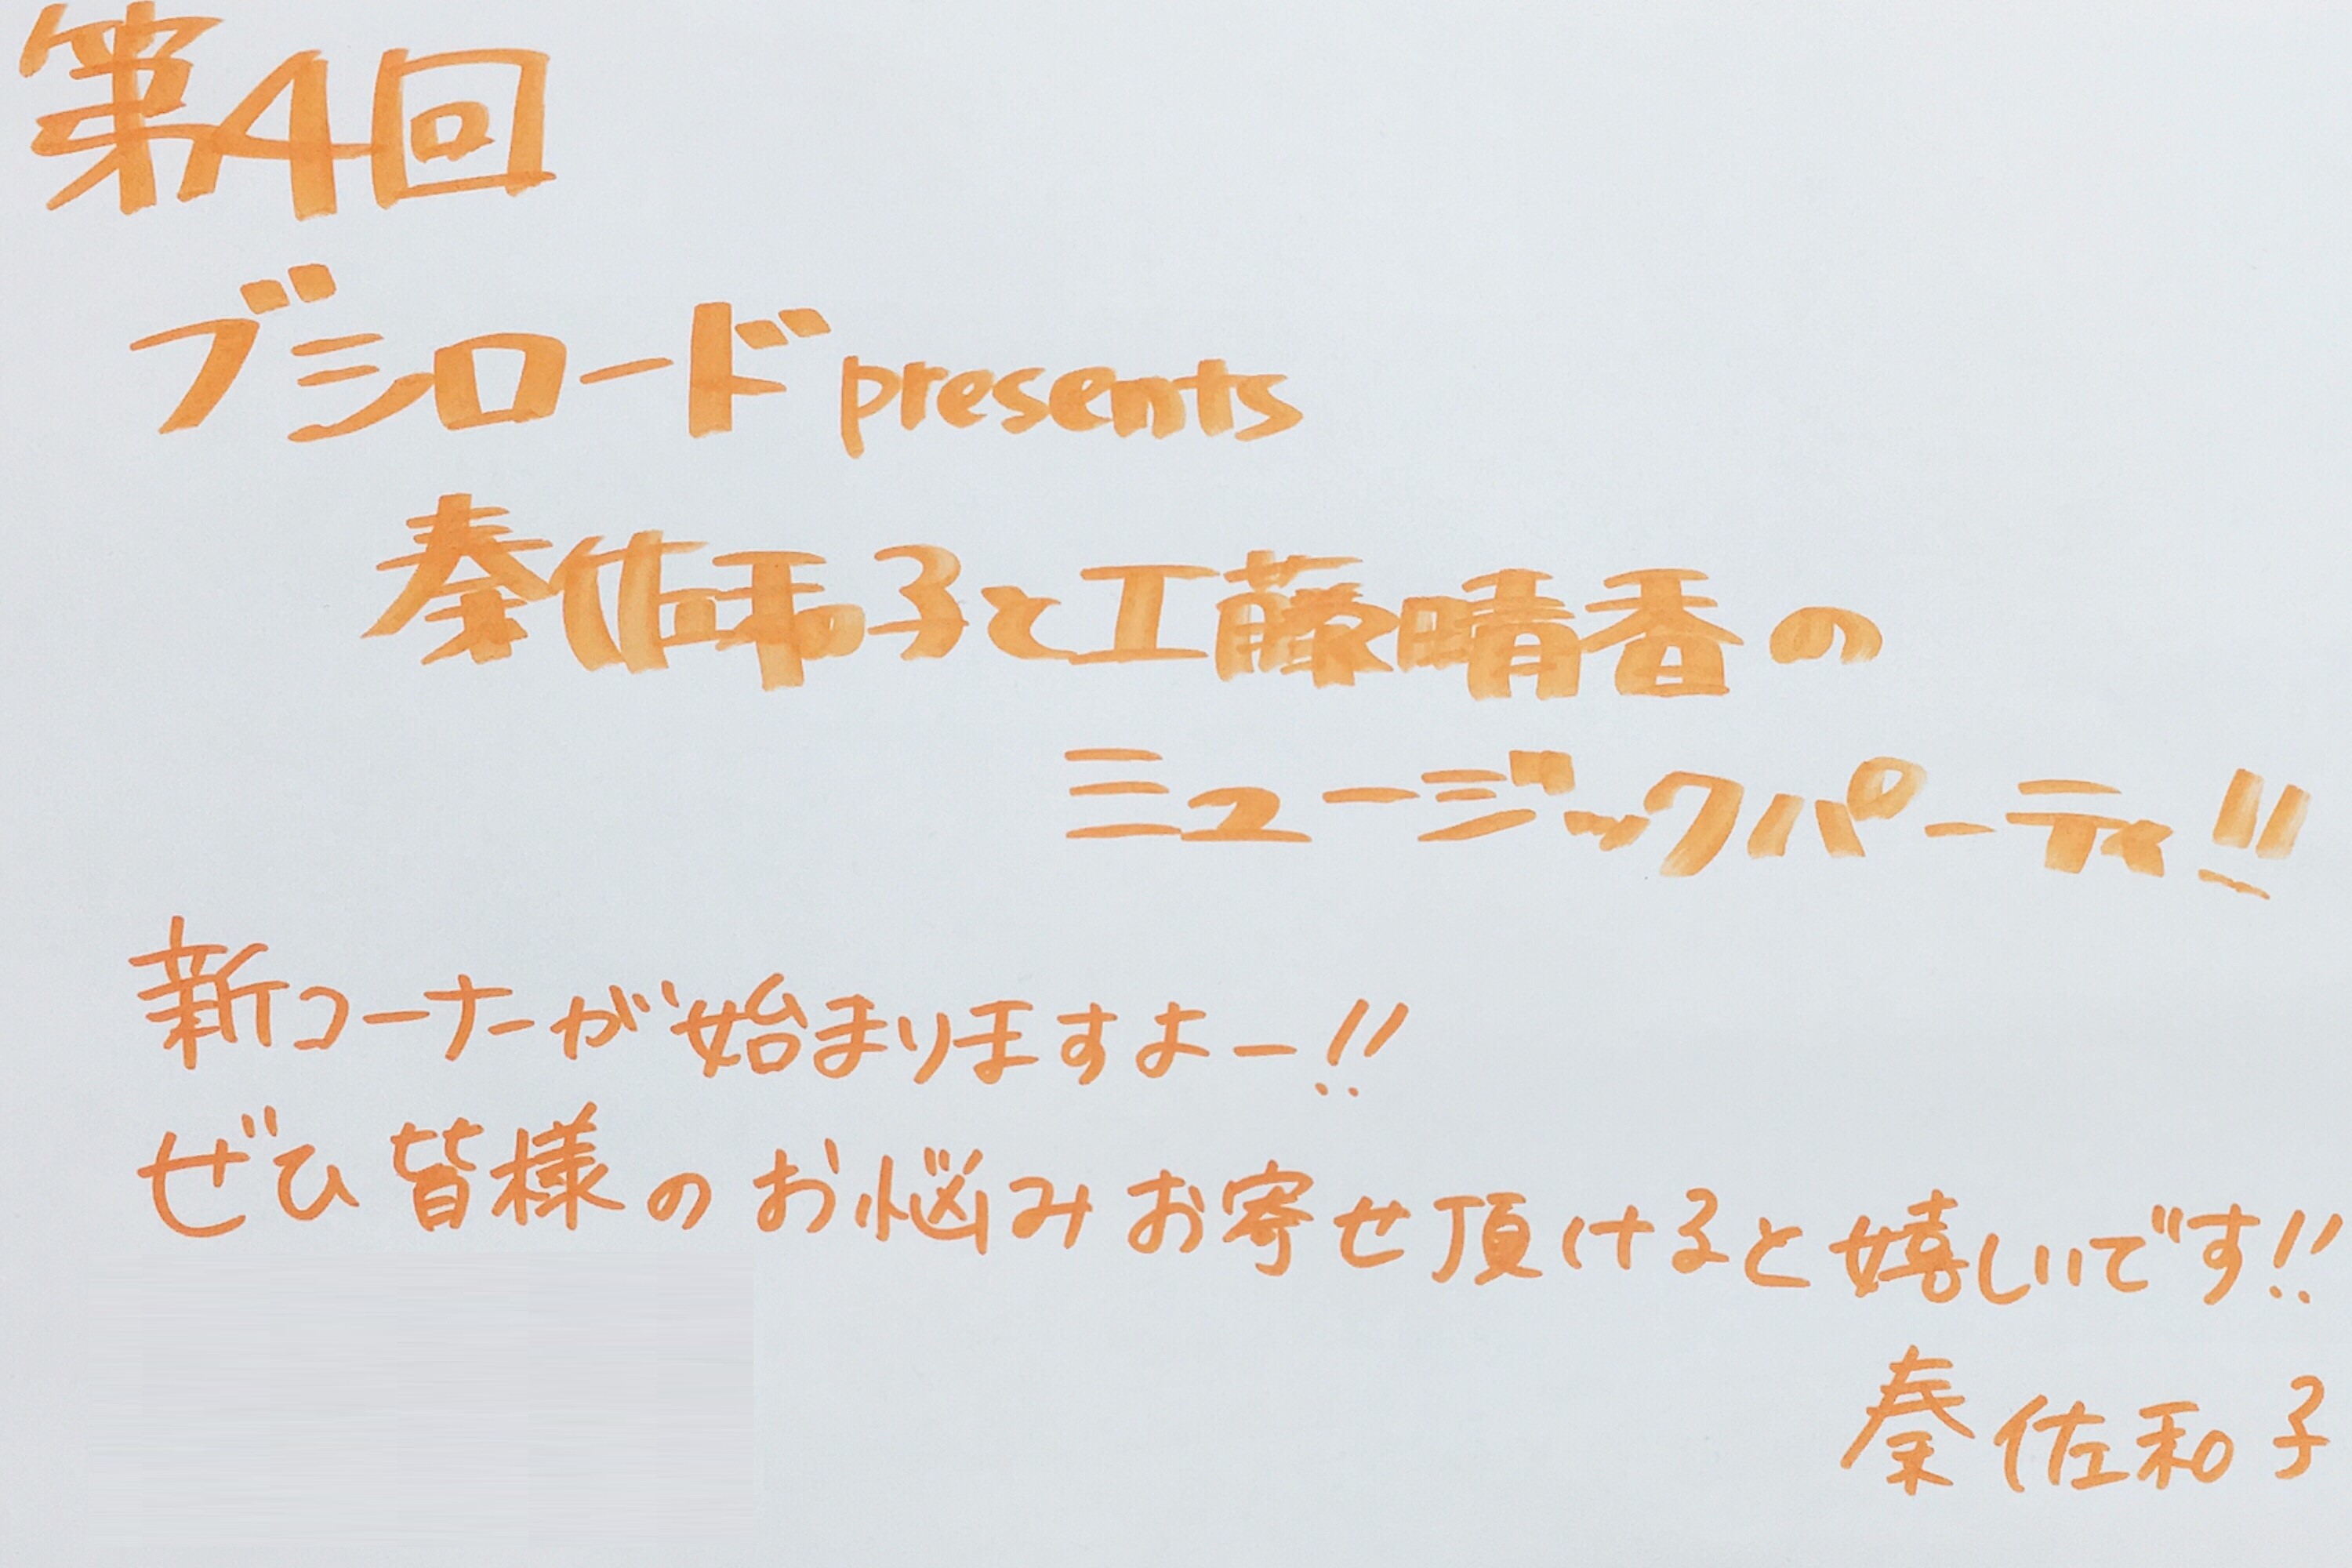 第4回
ブシロードpresents
秦佐和子と工藤晴香の
ミュージックパーティ!!
新コーナーが始まりますよー!!
ぜひ皆様のお悩みお寄せ頂けると嬉しいです!!
秦佐和子